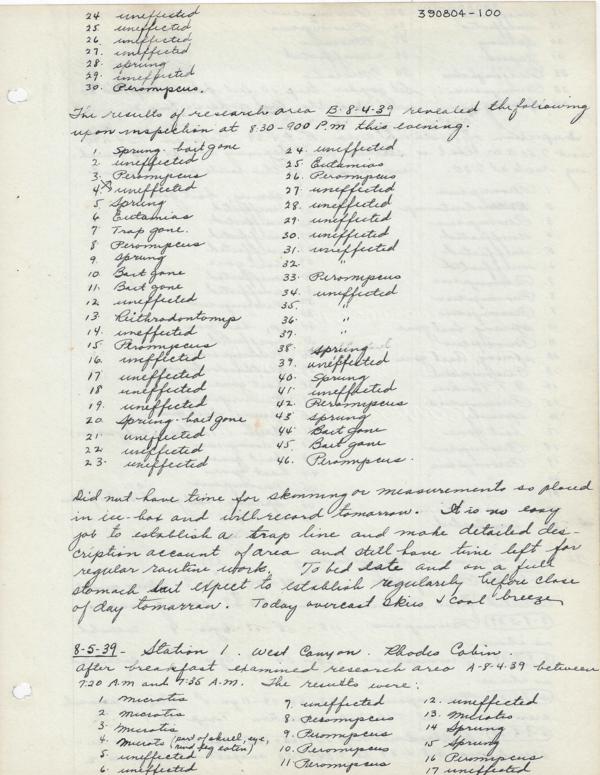 390804-100
24 uneffected
25 uneffected
26 uneffected
27. uneffected
28. sprung
29. uneffected
30. Peromyscus.
The results of research area B-8-4-39 revealed the following
upon inspection at 8:30-900 P.M this evening.
1. Sprung - bait gone
2. uneffected
3. Peromyscus
4. uneffected
5. Sprung
6 Eutamias
7 Trap gone.
8 Peromyscus
9. Sprung
10 Bait gone
11. Bait gone
12. uneffected
13. Reithrodontomys
14. uneffected
15. Peromyscus
16. uneffected
17 uneffected
18 uneffected
19. uneffected
20. Sprung - bait gone
21. uneffected
22. uneffected
23. uneffected
24. uneffected
25 Eutamias
26. Peromyscus
27. uneffected
28. uneffected
29. uneffected
30. uneffected
31. uneffected
32. "
33. Peromyscus
34. uneffected
35. "
36. "
37. "
38 sprung
39. uneffected
40. Sprung
41. uneffected
42. Peromyscus
43 sprung
44. Bait gone
45. Bait gone
46. Peromyscus.
Did not have time for skinning or measurements so placed
in ice-box and will record tomorrow. It is no easy
job to establish a trap line and make detailed des-
cription account of area and still have time left for
regular routine work. To bed late and on a full
stomach but expect to establish regularity before close
of day tomarrow. Today overcast skies & cool breeze
8-5-39 - Station 1. West Canyon. Rhodes Cabin.
After breakfast examined research area A-8-4-39 between
7:20 A.M and 7:35 A.M. The results were:
1. Microtis
2 Microtis
3. Microtis
4. Microts (part of skull, eye,
hind leg eaten)
5. uneffected
6. uneffected
7. uneffected
8. Peromyscus
9. Peromyscus
10. Peromyscus
11 Peromyscus
12. uneffected
13. Microtes
14 Sprung
15 Sprung
16 Peromyscus
17 uneffected